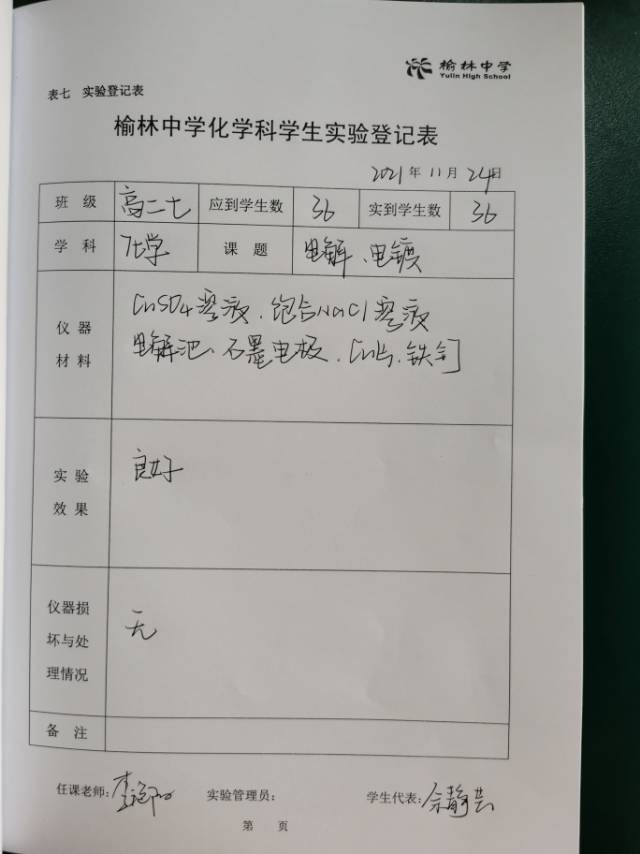 榆林中学
Yulin High School
表七 实验登记表
榆林中学化学科学生实验登记表
2021年11月24日
班 级 高二七 应到学生数 36 实到学生数 36
学 科 化学 课 题 电解、电镀
仪 器
材 料
CuSO4溶液、饱合NaCl溶液
电解池、石墨电极、Cu片、铁钉
实 验
效 果
良好
仪器损
坏与处
理情况
无
备 注
任课老师: 实验管理员: 学生代表:余静芸
第 页